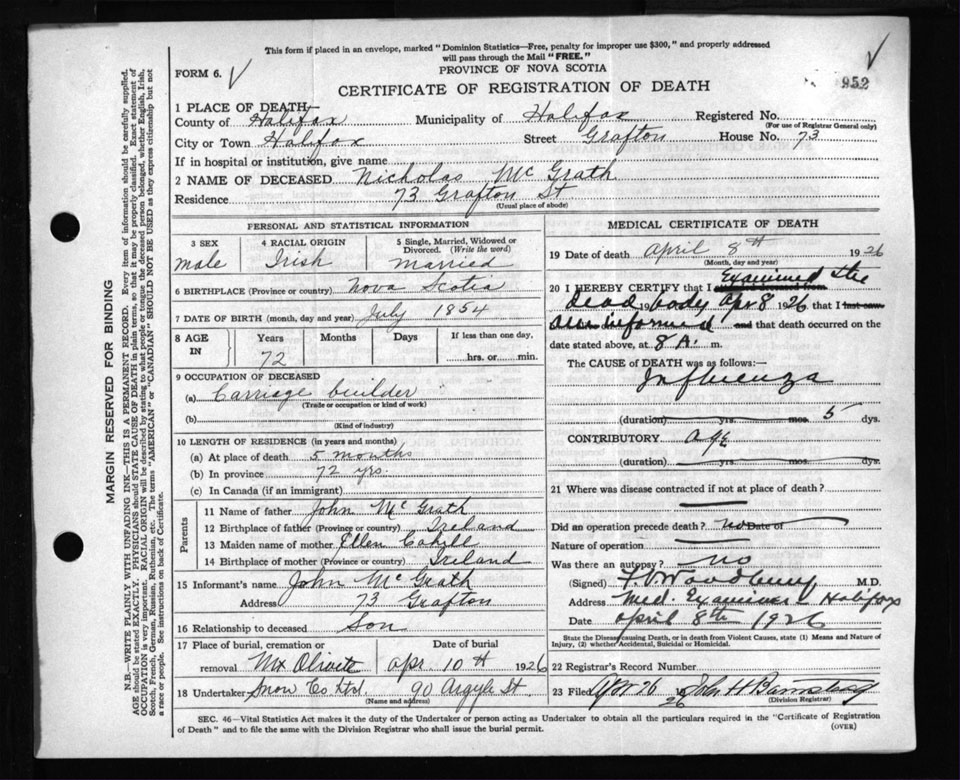 This form if placed in an envelope, marked "Dominion Statistics—Free, penalty for improper use $300," and properly addressed
will pass through the Mail "FREE."
PROVINCE OF NOVA SCOTIA
FORM 6.
952
CERTIFICATE OF REGISTRATION OF DEATH
1 PLACE OF DEATH—
County of Halifax Municipality of Halifax Registered No.
(For use of Registrar General only)
City or Town Halifax Street Grafton House No. 73
If in hospital or institution, give name
2 NAME OF DECEASED Nicholas McGrath
Residence 73 Grafton St
(Usual place of abode)
PERSONAL AND STATISTICAL INFORMATION
3 SEX 4 RACIAL ORIGIN 5 Single, Married, Widowed or
Divorced. (Write the word)
male Irish married
6 BIRTHPLACE (Province or country) Nova Scotia
7 DATE OF BIRTH (month, day and year) July 1854
8 AGE IN Years Months Days If less than one day,
72 hrs. or min.
9 OCCUPATION OF DECEASED
(a) Carriage builder
(Trade or occupation or kind of work)
(b)
(Kind of industry)
10 LENGTH OF RESIDENCE (in years and months)
(a) At place of death 5 months
(b) In province 72 yrs.
(c) In Canada (if an immigrant)
Parents
11 Name of father John McGrath
12 Birthplace of father (Province or country) Ireland
13 Maiden name of mother Ellen Cahill
14 Birthplace of mother (Province or country) Ireland
15 Informant's name John McGrath
Address 73 Grafton
16 Relationship to deceased Son
17 Place of burial, cremation or Date of burial
removal Mt Olivet Apr 10th 1926
18 Undertaker Snow Co Ltd. 90 Argyle St.
(Name and address)
MEDICAL CERTIFICATE OF DEATH
19 Date of death April 8th 1926
(Month, day and year)
20 I HEREBY CERTIFY that I Examined the
dead body Apr 8 1926 that I
am informed and that death occurred on the
date stated above, at 8 A. m.
The CAUSE OF DEATH was as follows:—
Influenza
(duration) yrs. mos. 5 dys.
CONTRIBUTORY age
(duration) yrs. mos. dys.
21 Where was disease contracted if not at place of death?
Did an operation precede death? no Date of
Nature of operation
Was there an autopsy? no
(Signed) F.V. Woodbury M.D.
Address Med. Examiner Halifax
Date April 8th 1926
State the Disease causing Death, or in death from Violent Causes, state (1) Means and Nature of
Injury, (2) whether Accidental, Suicidal or Homicidal.
22 Registrar's Record Number
23 Filed Apr 26 1926 John H Barnstead
(Division Registrar)
SEC. 46—Vital Statistics Act makes it the duty of the Undertaker or person acting as Undertaker to obtain all the particulars required in the "Certificate of Registration
of Death" and to file the same with the Division Registrar who shall issue the burial permit.
(OVER)
MARGIN RESERVED FOR BINDING
N.B.—WRITE PLAINLY WITH UNFADING INK—THIS IS A PERMANENT RECORD. Every item of information should be carefully supplied.
AGE should be stated EXACTLY. PHYSICIANS should STATE CAUSE OF DEATH in plain terms, so that it may be properly classified. Exact statement of
OCCUPATION is very important. RACIAL ORIGIN will be described by stating to what people or tongue the deceased person belonged, whether English, Irish,
Scotch, French, German, Russian, Ruthenian, etc. The terms "AMERICAN" or "CANADIAN" SHOULD NOT BE USED as they express citizenship but not
a race or people. See instructions on back of Certificate.